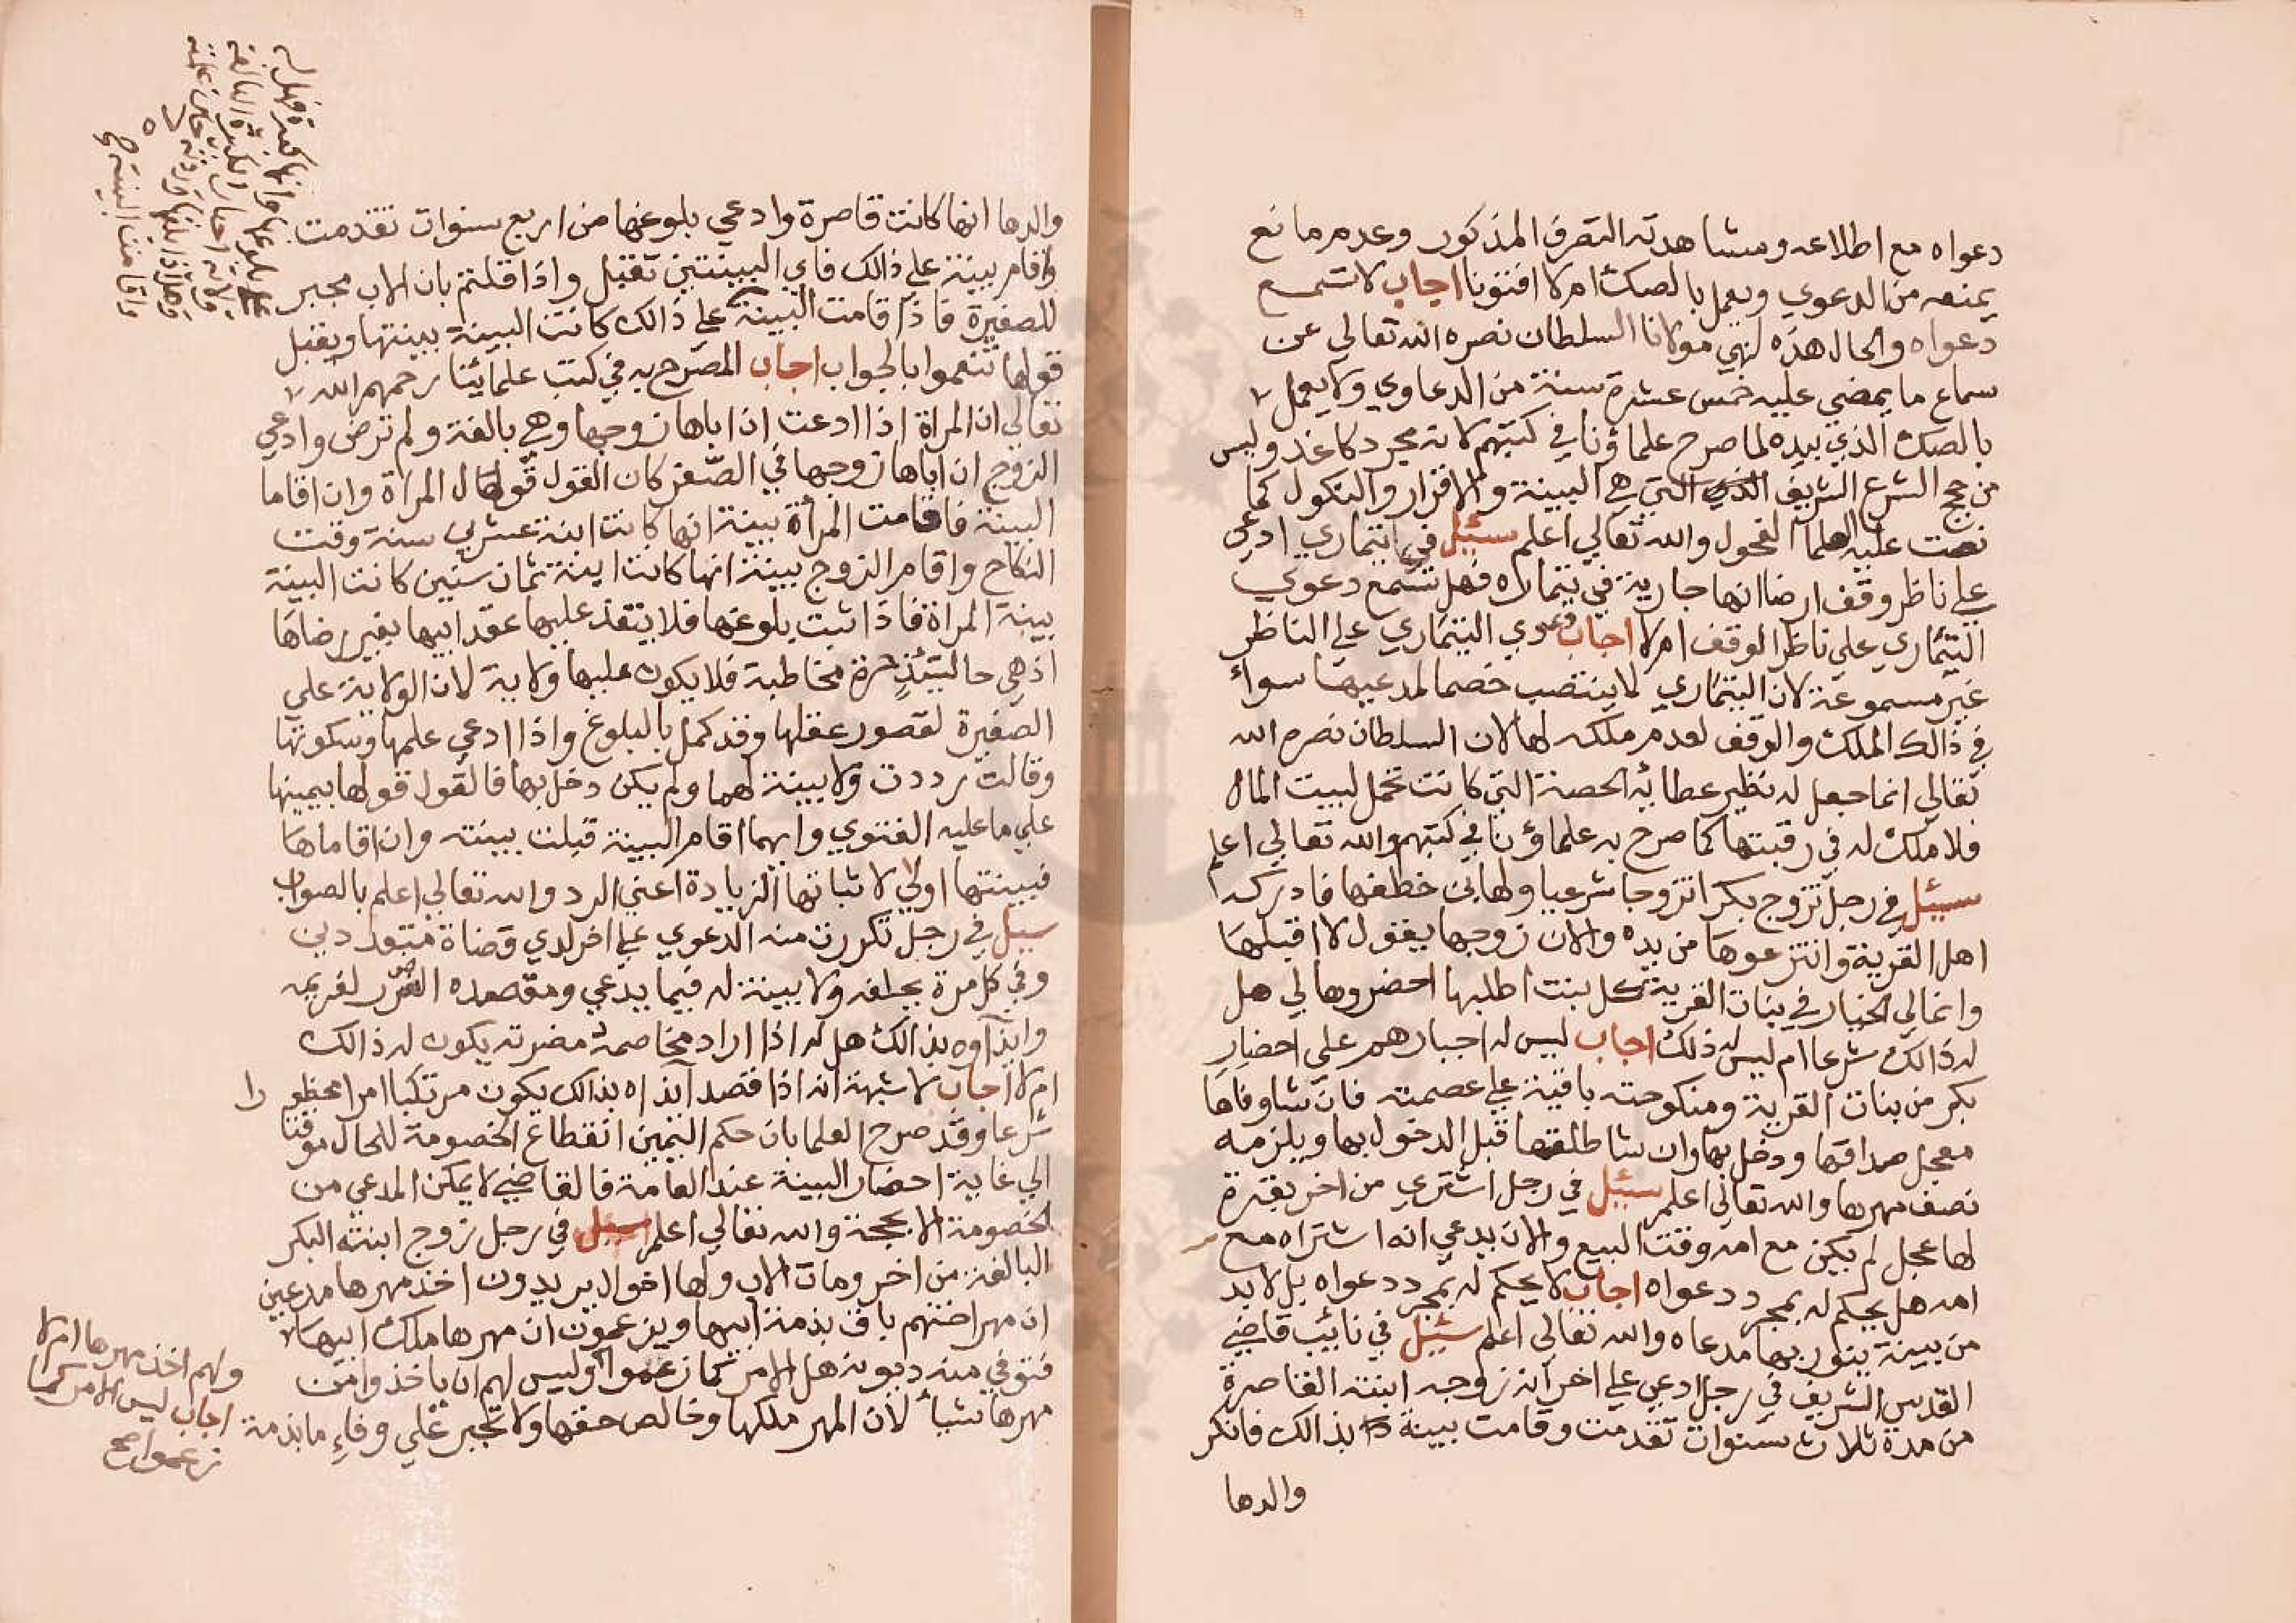 دعواه مع اطلاعه ومشاهدته التصرف المذكور وعدم مانع
يمنعه من الدعوي ويعمل بالصك ام لا افتونا اجاب لا تسمع
دعواه والحال هذه لنهي مولانا السلطان نصره الله تعالي عن
سماع ما يمضي عليه خمس عشرة سنة من الدعاوي ولا يعمل
بالصك الذي بيده لما صرح علماؤنا في كتبهم لانه مجرد كاغد وليس
من حجج الشرع الشريف التي هي البينة والاقرار والنكول كما
نصت عليه العلما الفحول والله تعالي اعلم سئيل في تيماري ادعي
علي ناظر وقف ارضا انها جارية في تيماره فهل تسمع دعوي
التيماري علي ناظر الوقف ام لا اجاب دعوي التيماري علي الناظر
غير مسموعة لان التيماري لا ينتصب خصما لمدعيها سواء
في ذالك الملك والوقف لعدم ملكه لها لان السلطان نصره الله
تعالي انما جعل له نظير عطائه الحصة التي كانت تحمل لبيت المال
فلا ملك له في رقبتها كما صرح به علماؤنا في كتبهم والله تعالي اعلم
سئيل في رجل تزوج بكرا تزوجا شرعيا ولها بن خطفها فادركه
اهل القرية وانتزعوها من يده والان زوجها يقول لا اقبلها
وانما لي الخيار في بنات القرية كل بنت اطلبها احضروها لي هل
له ذالك شرعا ام ليس له ذلك اجاب ليس له اجبارهم علي احضار
بكر من بنات القرية ومنكوحته باقية علي عصمته فان شا وفاها
معجل صداقها ودخل بها وان شا طلقها قبل الدخول بها ويلزمه
نصف مهرها والله تعالي اعلم سئيل في رجل اشتري من اخر بقرة
لها عجل لم يكن مع امه وقت البيع والان يدعي انه اشتراه مع
امه هل يحكم له بمجرد دعواه اجاب لا يحكم له بمجرد دعواه بل لا بد
من بينة ينور بها مدعاه والله تعالي اعلم سئيل في نائب قاضي
القدس الشريف في رجل ادعي علي اخر انه زوجه ابنته القاصرة
من مدة ثلاث سنوات تقدمت وقامت بينة بذالك فانكر
والدها
والدها انها كانت قاصرة وادعي بلوغها من اربع سنوات تقدمت
واقام بينة علي ذالك فاي البينتين تقبل واذا قلتم بان الاب مجبر
للصغيرة فاذا قامت البينة علي ذالك كانت البينة بينتها ويقبل
قولها تنعموا بالجواب اجاب المصرح به في كتب علمائنا رحمهم الله
تعالي ان المراة اذا ادعت ان اباها زوجها وهي بالغة ولم ترض وادعي
الزوج ان اباها زوجها في الصغر كان القول قول المراة وان اقاما
البينة فاقامت المراة بينة انها كانت ابنة عشرين سنة وقت
النكاح واقام الزوج بينة انها كانت ابنة ثمان سنين كانت البينة
بينة المراة فاذا ثبت بلوغها فلا ينفذ عليها عقد ابيها بغير رضاها
اذ هي حالتيئذ حرة مخاطبة فلا يكون عليها ولاية لان الولاية علي
الصغيرة لقصور عقلها وقد كمل بالبلوغ واذا ادعي علمها وسكوتها
وقالت رددت ولا بينة لهما ولم يكن دخل بها فالقول قولها بيمينها
علي ما عليه الفتوي وايهما اقام البينة قبلت بينته وان اقاماها
فبينتها اولي لاثباتها الزيادة اعني الرد والله تعالي اعلم بالصواب
سئيل في رجل تكررت منه الدعوي علي اخر لدي قضاة متعددين
وفي كل مرة يحلفه ولا بينة له فيما يدعي ومقصده الضرر لغريمه
وايذاوه بذالك هل له اذا اراد مخاصمة مضرته يكون له ذالك
ام لا اجاب لا شبهة انه اذا قصد ايذاه بذالك يكون مرتكبا امرا محظورا
شرعا وقد صرح العلما بان حكم اليمين انقطاع الخصومة للحال موقتا
الي غاية احضار البينة عند العامة فالقاضي لا يمكن المدعي من
الخصومة الا بحجة والله تعالي اعلم سئيل في رجل زوج ابنته البكر
البالغة من اخر ومات الاب ولها اخوال يريدون اخذ مهرها مدعين
ان مهر اختهم باق بذمة ابيها ويزعمون ان مهرها ملك ابيها
فتوفي منه ديونه هل الامر كما زعموا وليس لهم ان ياخذوا من
مهرها شيأ لان المهر ملكها وخالص حقها ولا تجبر علي وفاء ما بذمة
ولهم اخذ مهرها ام لا
اجاب ليس الامر كما
زعموا صح